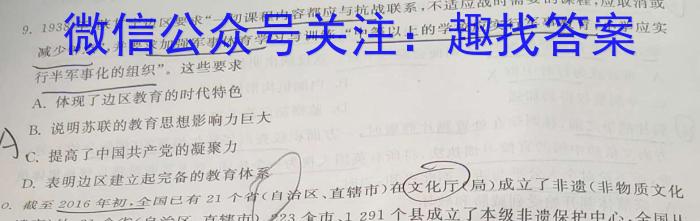 9. 1938 边区要求“一切课程内容都应与抗战联系，不适应战时需要的课程，应取消或
微信公众号关注：趣找答案
减少 学应实
行半军事化的组织”。这些要求
A. 体现了边区教育的时代特色
B. 说明苏联的教育思想影响力巨大
A
C. 提高了中国共产党的凝聚力
D. 表明边区建立起完备的教育体系
0. 截至2016年初,全国已有21个省(自治区、直辖市)在文化厅(局)成立了非遗(非物质文化
省(自治区、直辖市) 223 1 291个县成立了本级非遗保护中心,全国从